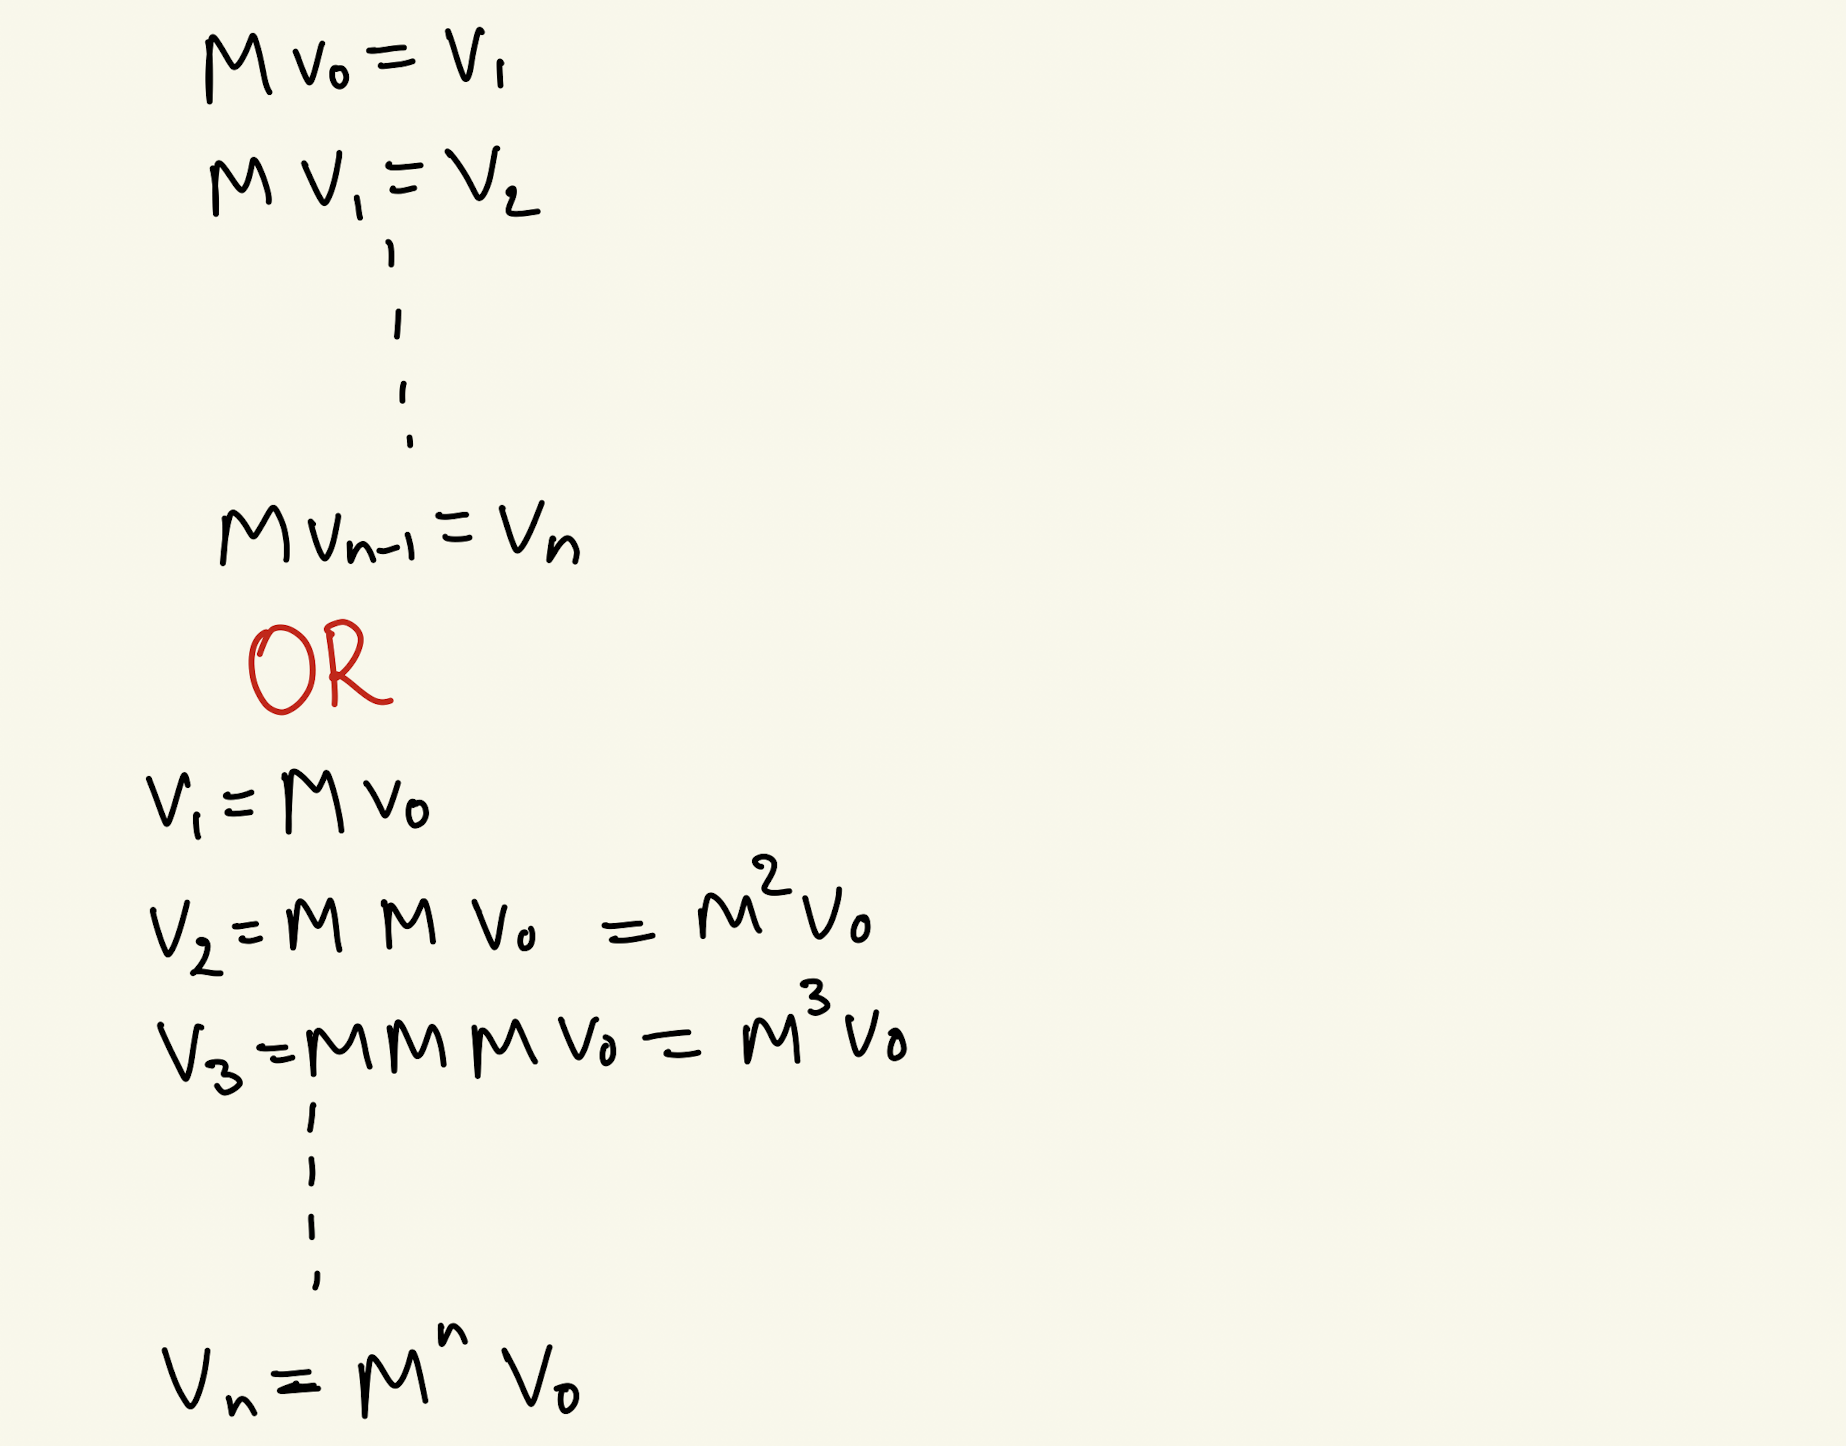 M v₀ = V₁
M V₁ = V₂
M Vₙ₋₁ = Vₙ
OR
V₁ = M V₀
V₂ = M M V₀ = M² V₀
V₃ = M M M V₀ = M³ V₀
Vₙ = Mⁿ V₀